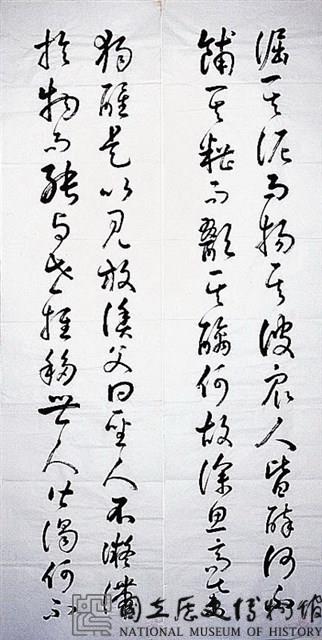 淈其泥而揚其波眾人皆醉何不
餔其糟而歠其醨何故深思高舉
獨醒是以見放漁父曰聖人不凝滯
於物而能與世推移世人皆濁何不
國立歷史博物館
NATIONAL MUSEUM OF HISTORY